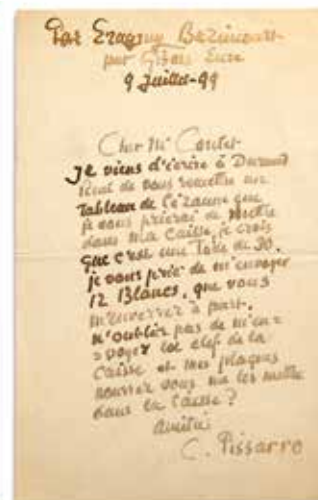 Par Eragny Bazincourt
par Gisors Eure
9 Juillet-99
Cher Mr Contet
Je viens d'écrire à Durand
Ruel de vous remettre un
tableau de Cézanne que
je vous prierai de mettre
dans ma caisse, je crois
que c'est une Toile de 30.
je vous prie de m'envoyer
12 Blancs, que vous
m'enverrez à part.
N'oubliez pas de m'en=
=voyer la clef de la
Caisse et mes plaques
pourrez vous me les mettre
dans la Caisse?
amitiés
C. Pissarro